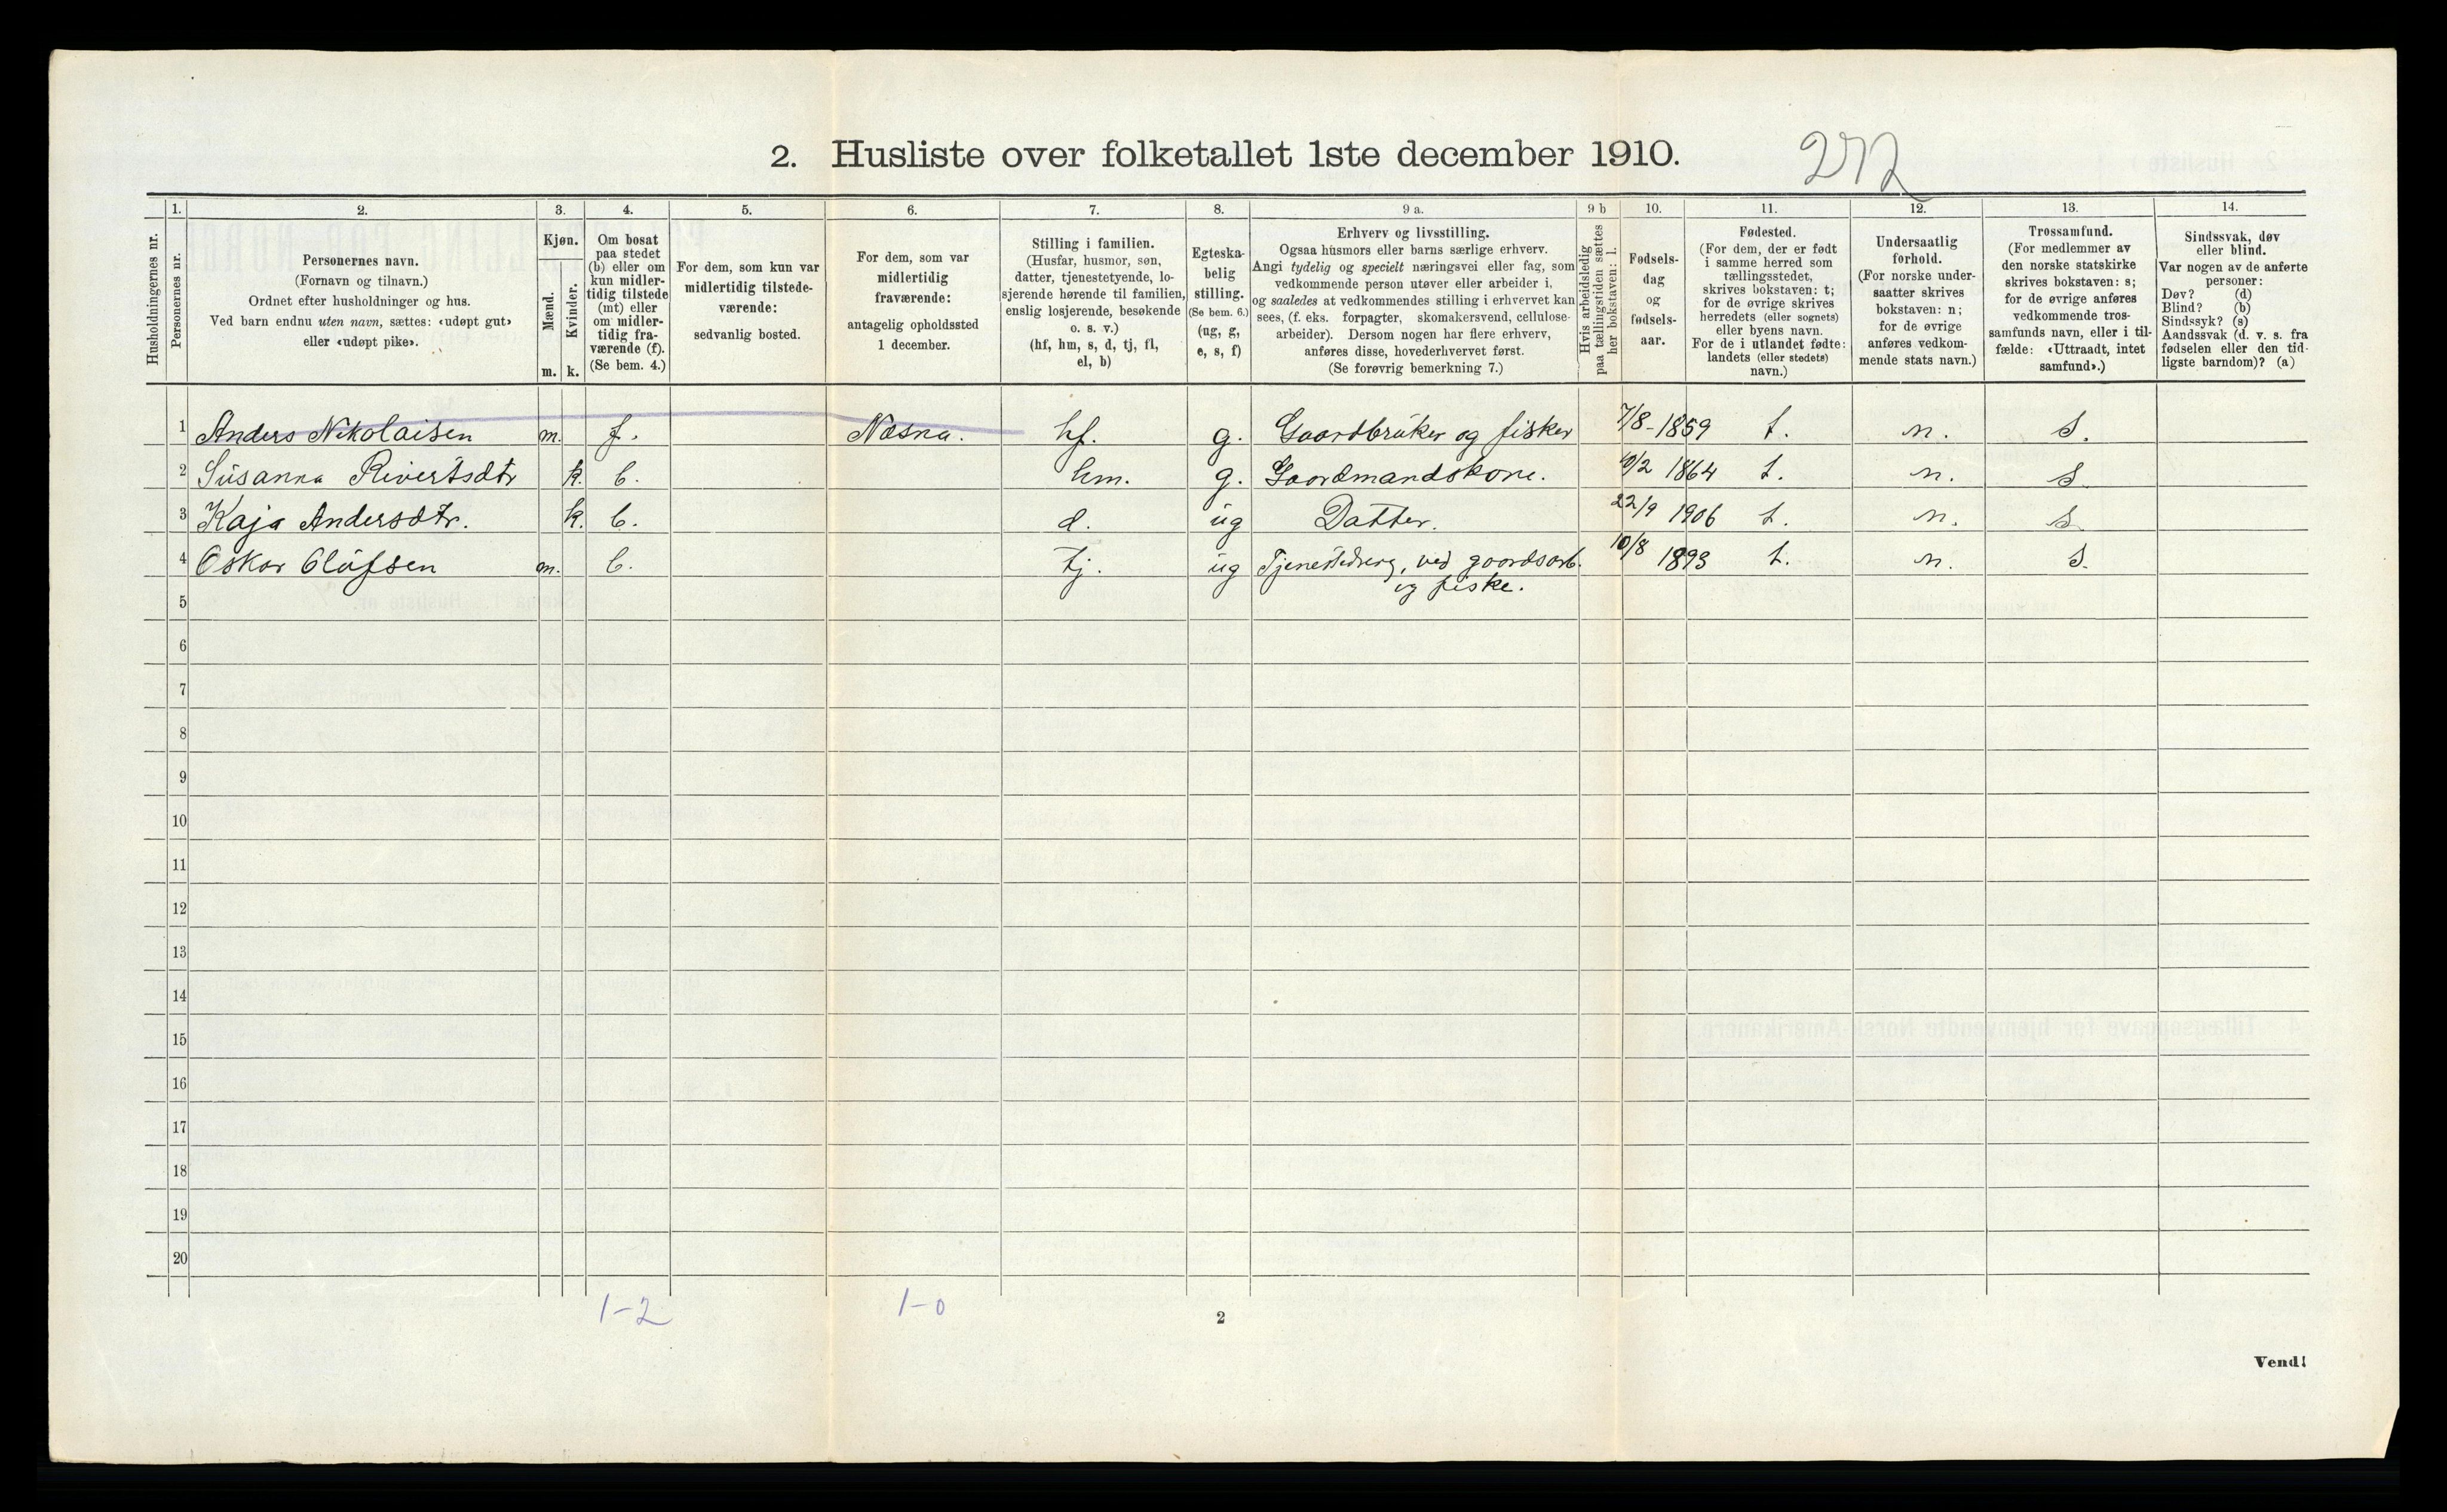 2. Husliste over folketallet 1ste december 1910.
272
Husholdningernes nr.
1.
Personernes nr.
2.
Personernes navn.
(Fornavn og tilnavn.)
Ordnet efter husholdninger og hus.
Ved barn endnu uten navn, sættes: «udøpt gut»
eller «udøpt pike».
3.
Kjøn.
Mænd.
Kvinder.
m. k.
4.
Om bosat
paa stedet
(b) eller om
kun midler-
tidig tilstede
(mt) eller
om midler-
tidig fra-
værende (f).
(Se bem. 4.)
5.
For dem, som kun var
midlertidig tilstede-
værende:
sedvanlig bosted.
6.
For dem, som var
midlertidig
fraværende:
antagelig opholdssted
1 december.
7.
Stilling i familien.
(Husfar, husmor, søn,
datter, tjenestetyende, lo-
sjerende hørende til familien,
enslig losjerende, besøkende
o. s. v.)
(hf, hm, s, d, tj, fl,
el, b)
8.
Egteska-
belig
stilling.
(Se bem. 6.)
(ug, g,
e, s, f)
9 a.
Erhverv og livsstilling.
Ogsaa husmors eller barns særlige erhverv.
Angi tydelig og specielt næringsvei eller fag, som
vedkommende person utøver eller arbeider i,
og saaledes at vedkommendes stilling i erhvervet kan
sees, (f. eks. forpagter, skomakersvend, cellulose-
arbeider). Dersom nogen har flere erhverv,
anføres disse, hovederhvervet først.
(Se forøvrig bemerkning 7.)
9 b
Hvis arbeidsledig
paa tællingstiden sættes
her bokstaven: l.
10.
Fødsels-
dag
og
fødsels-
aar.
11.
Fødested.
(For dem, der er født
i samme herred som
tællingsstedet,
skrives bokstaven: t;
for de øvrige skrives
herredets (eller sognets)
eller byens navn.
For de i utlandet fødte:
landets (eller stedets)
navn.)
12.
Undersaatlig
forhold.
(For norske under-
saatter skrives
bokstaven: n;
for de øvrige
anføres vedkom-
mende stats navn.)
13.
Trossamfund.
(For medlemmer av
den norske statskirke
skrives bokstaven: s;
for de øvrige anføres
vedkommende tros-
samfunds navn, eller i til-
fælde: «Uttraadt, intet
samfund».)
14.
Sindssvak, døv
eller blind.
Var nogen av de anførte
personer:
Døv? (d)
Blind? (b)
Sindssyk? (s)
Aandssvak (d. v. s. fra
fødselen eller den tid-
ligste barndom)? (a)
1 Anders Nikolaisen m. f. Næsna. hf. g. Gaardbruker og fisker 7/8-1859 t. n. s.
2 Susanna Rivertsdtr k. b. hm. g. Gaardmandskone. 1864 t. n. s
3 Kaja Andersdtr. k. b. d. ug Datter. 22/9 1906 t. n. s
4 Oskar Olufsen m. b. tj. ug Tjenestedreng, ved gaardsarb. 10/8 1893 t. n. s.
og fiske.
5
6
7
8
9
10
11
12
13
14
15
16
17
18
19
20
1-2 1-0
2
Vend!